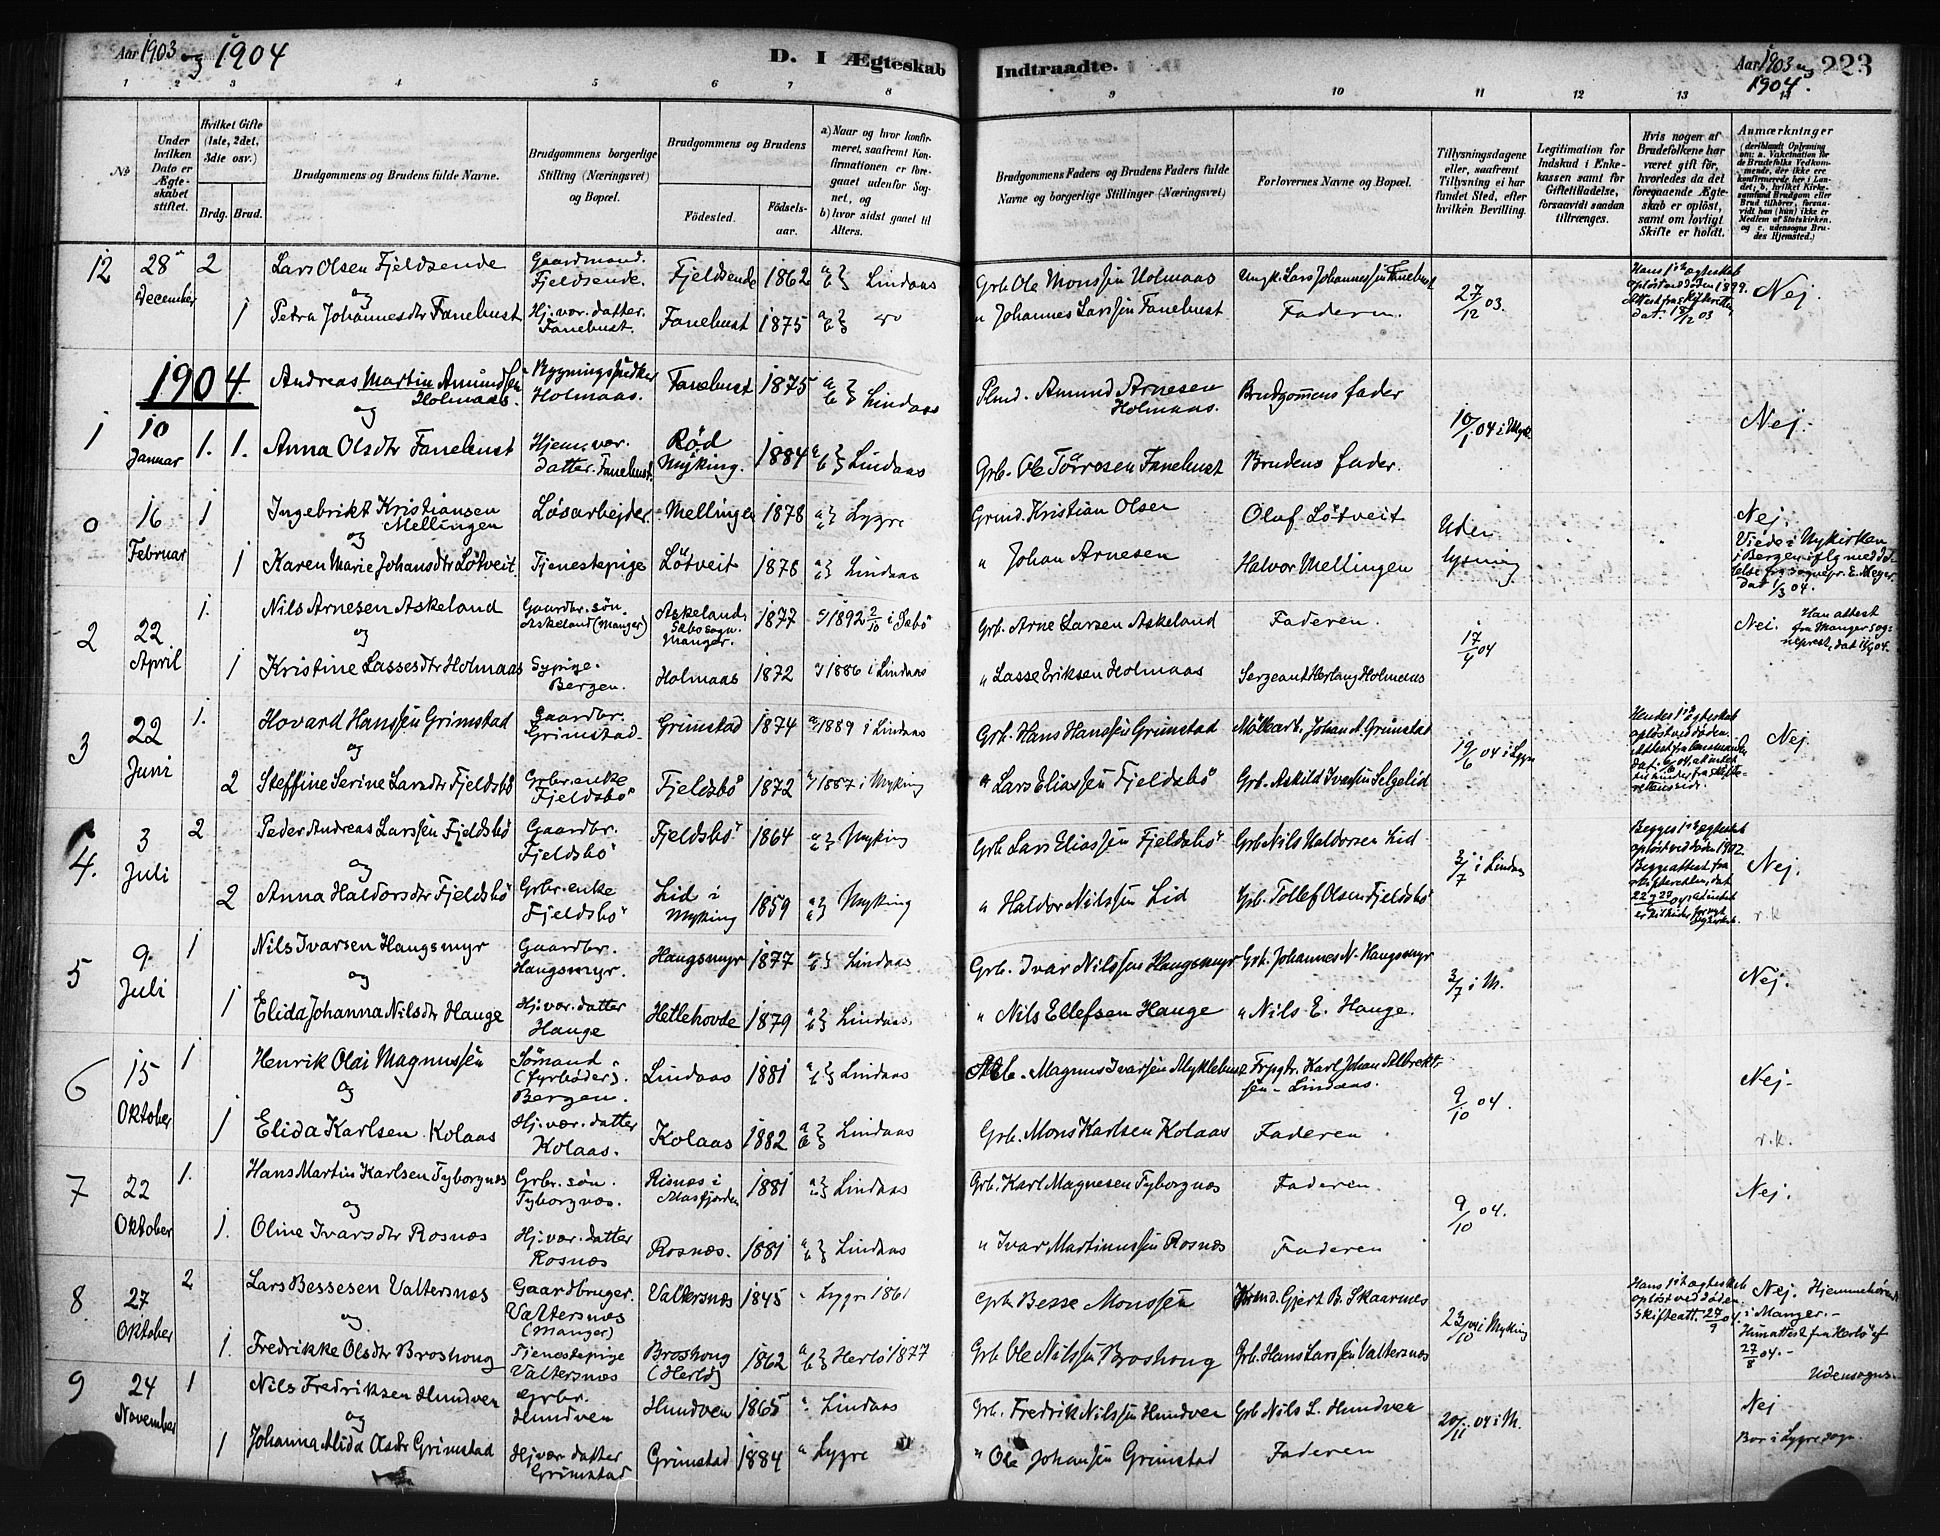 Aar 1903 og 1904
D. I Ægteskab Indtraadte.
Aar 1903 og 1904. 223
1 2 3 4 5 6 7 8 9 10 11 12 13 14
No
Under hvilken Dato er Ægteskabet stiftet.
Hvilket Gifte (1ste, 2det, 3die osv.)
Brdg. Brud.
Brudgommens og Brudens fulde Navne.
Brudgommens borgerlige Stilling (Næringsvei) og Bopæl.
Brudgommens og Brudens
Fødested. Fødselsaar.
a) Naar og hvor konfirmeret, saafremt Konfirmationen er foregaaet udenfor Sognet, og
b) hvor sidst gaaet til Alters.
Brudgommens Faders og Brudens Faders fulde Navne og borgerlige Stillinger (Næringsvei)
Forlovernes Navne og Bopæl.
Tillysningsdagene eller, saafremt Tillysning ei har fundet Sted, efter hvilken Bevilling.
Legitimation for Indskud i Enkekassen samt for Giftetilladelse, forsaavidt saadan tiltrænges.
Hvis nogen af Brudefolkene har været gift før, hvorledes da det foregaaende Ægteskab er opløst, samt om lovligt Skifte er holdt.
Anmærkninger
(deriblandt Oplysning om: a. Vakcination for de Brudefolks Vedkommende, der ikke ere konfirmerede her i Landet; b. hvilket Kirkesamfund Brudgom eller Brud tilhører, forsaavidt han (hun) ikke er Medlem af Statskirken, og c. udensogns Brudes Hjemsted.)
12 28 December 2 Lars Olsen Fjeldsende Gaardmand. Fjeldsende. Fjeldsende 1862 a b} Lindaas Grb. Ole Monssen Holmaas Ungk. Lars Johannessen Fanebust 27/12 03. Hans 1ste ægteskab opløst ved døden 1899. Attest fra Skifteretten dat. /12 03 Nej.
og
1 Petra Johannesdtr Fanebust Hj. vær. datter. Fanebust. Fanebust 1875 a b} do " Johannes Larssen Fanebust Faderen.
1904.
1 10 Januar 1. Andreas Martin Amundsen Holmaas. Bygningssnedker Holmaas. Fanebust 1875 a b} Lindaas Plmd. Amund Arnesen Holmaas. Brudgommens fader 10/1 04 i Myk. Nej.
og
1. Anna Olsdtr Fanebust Hjem. vær. datter. Fanebust. Rød Myking. 1884 a b} Lindaas Grb. Ole Tørresen Fanebust Brudens fader.
0 16 Februar 1 Ingebrikt Kristiansen Mellingen Løsarbejder. Mellingen 1878 a} Lygre Grmd. Kristian Olsen Oluf Løtveit Uden lysning Nej. Viede i Nykirken i Bergen iflg meddelelse fra sognepr. E. Meyer dat 1/3 04.
og
1 Karen Marie Johansdtr Løtveit. Tjenestepige Løtveit 1878 a} Lindaas " Johan Arnesen Halvor Mellingen
2 22 April 1. Nils Arnesen Askeland Gaardbr. søn. Askeland (Manger) Askeland, Sæbø sogn. Manger. 1877 1892 2/10 i Sæbø Grb. Arne Larsen Askeland Faderen. 17/4 04 Nei. Han attest fra Manger sogneprest, dat 04.
og
1 Kristine Lassesdtr Holmaas Sypige. Bergen. Holmaas 1872 1886 i Lindaas " Lasse Eriksen Holmaas Sergeant Holmaas
3 22 Juni 1. Hovard Hanssen Grimstad Gaardbr. Grimstad. Grimstad 1874 1889 i Lindaas Grb. Hans Hanssen Grimstad Johan Grimstad 19/6 04 i Lygre Hendes 1ste ægteskab opløst ved døden. Nej.
og
2 Steffine Serine Larsdtr Fjeldsbø Grbr. enke Fjeldsbø Fjeldsbø 1872 1887 i Myking " Lars Eliassen Fjeldsbø Grb. Askild Ivarsen Helgelid
4. 3 Juli 2 Peder Andreas Larssen Fjeldsbø Gaardbr. Fjeldsbø Fjeldsbø 1864 a} Myking Grb Lars Eliassen Fjeldsbø Grb Nils Haldorsen Lid 3/7 i Lindaas Begges 1ste ægteskab opløst ved døden 1902. Begge attest fra skifteretten, dat 22 og 23/6 04 Nej.
og
2 Anna Haldorsdtr Fjeldsbø Grbr. enke Fjeldsbø Lid i Myking 1859 a} Myking " Haldor Nilssen Lid Grb. Tollef Olsen Fjeldsbø r.k
5 9 Juli 1 Nils Ivarsen Haugsmyr Gaardbr. Haugsmyr. Haugsmyr 1877 a} Lindaas Grb. Ivar Nilssen Haugsmyr Grb. Johannes N. Haugsmyr 3/7 i M. Nej.
og
1 Elida Johanna Nilsdtr Hauge Hj. vær. datter Hauge Hetlehovde 1879 a b} Lindaas. " Nils Ellefsen Hauge " Nils E. Hauge.
6 15 Oktober 1 Henrik Olai Magnussen Sømand (fyrbøder). Bergen. Lindaas 1881 a b} Lindaas Magnus Ivarssen Myklebust Karl Johan Albrektsen Lindaas. 9/10 04. Nej.
og
1 Elida Karlsen Kolaas Hj. vær. datter Kolaas. Kolaas 1882 a b} Lindaas Grb. Mons Karlsen Kolaas Faderen r.k.
7 22 Oktober 1. Hans Martin Karlsen Tyborgnæs Grbr. søn. Tyborgnæs. Risnæs i Masfjorden 1881 a} Lindaas Grb. Karl Magnesen Tyborgnæs Faderen 9/10 04. Nej.
og
1. Oline Ivarsdtr Rosnæs Hj. vær. datter Rosnæs Rosnæs. 1881 a b} Lindaas " Ivar Martinussen Rosnæs Faderen
8. 27 Oktober 2 Lars Bessesen Valtersnæs Gaardbruger. Valtersnæs (Manger) Valtersnæs 1845 Lygre 1861 Grb Besse Monssen Gjert B. Skaarnæs 23/10 04 i Myking Hans 1ste ægteskab opløst ved døden. Skifteatt. 27/9 04. Nej. Hjemmehørende i Manger. Hun attest fra Herlø af 27/8 04. Udensogns.
og
1. Fredrikke Olsdtr Broshoug Tjenestepige Valtersnæs Broshoug (Herlø) 1862 a b} Herlø 1877 Grb. Ole Nilssen Broshoug Grb. Hans Larssen Valtersnæs
9 24 November 1 Nils Fredriksen Hundven Grbr. Hundven Hundven 1865 Lindaas Grb. Fredrik Nilssen Hundven Grb Nils L. Hundven 20/11 04 i M. Nej
og
1 Johanna Alida Olsdtr Grimstad Hj. vær datter Grimstad Grimstad 1884 a Lygre " Ole Johansen Grimstad Faderen Bor i Lygre sogn.